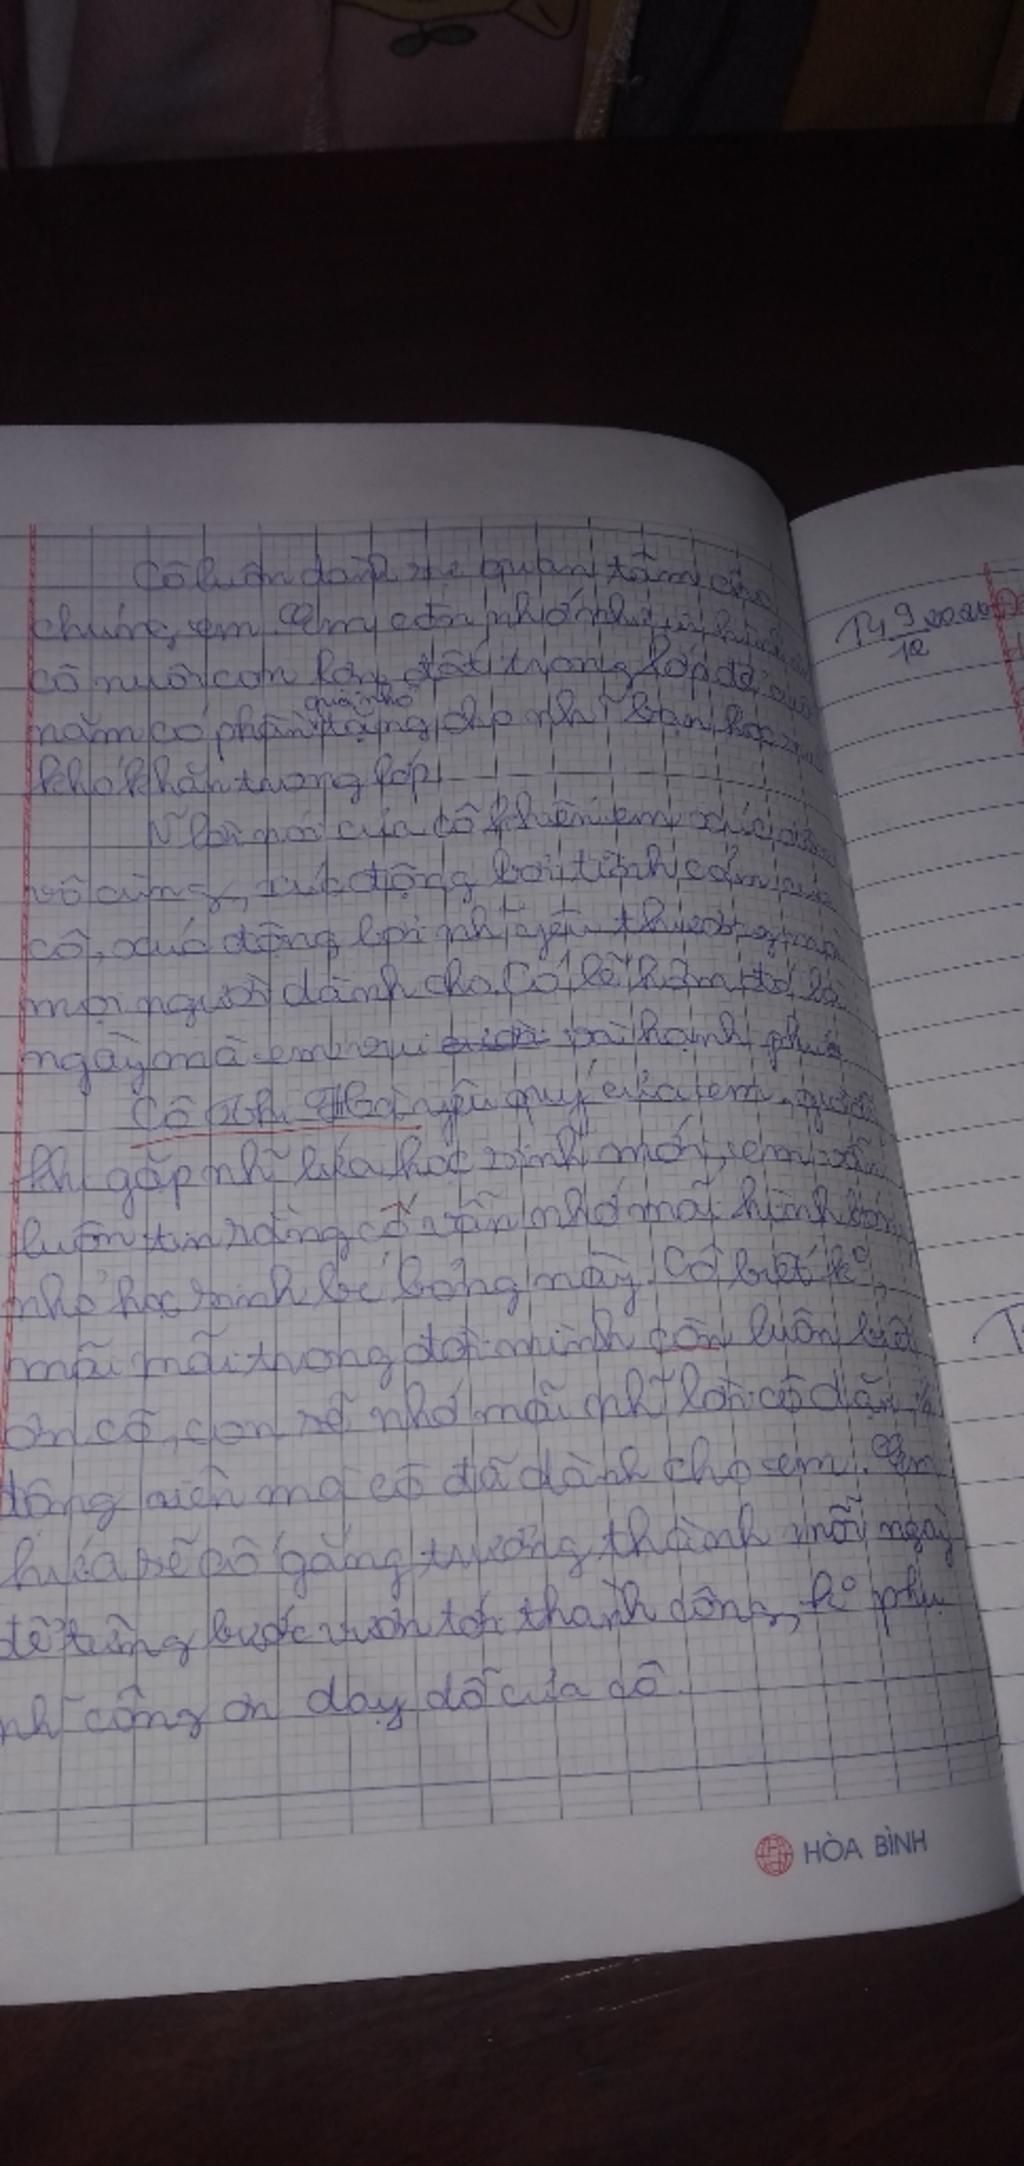 Cô luôn dành sự quan tâm cho
chúng em. Em còn nhớ như in hình
cô nuôi con lợn đất trong lớp để cuối
năm có phần quà nhỏ tặng cho nh~ bạn học sinh
khó khăn trong lớp.
Nh~ lời nói của cô khiến em xúc động
vô cùng, xúc động bởi tình cảm của
cô, xúc động bởi nh~ yêu thương mà
mọi người dành cho. Có lẽ hôm đó là
ngày mà em vui và hạnh phúc
Cô yêu quý của em,
khi gặp nh~ lứa học sinh mới, em vẫn
luôn tin rằng cô vẫn nhớ mãi hình bóng
nhỏ học sinh bé bỏng này. Cô biết k°,
mãi mãi trong đời mình con luôn biết
ơn cô, con sẽ nhớ mãi nh~ lời cô dặn,
động viên mà cô đã dành cho em. Em
hứa sẽ cố gắng trưởng thành mỗi ngày
để từng bước vươn tới thành công, k° phụ
nh~ công ơn dạy dỗ của cô.
HÒA BÌNH
T4 9
12